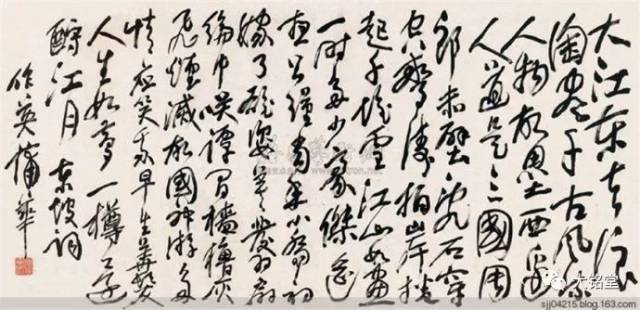 大江東去浪
淘盡千古風流
人物故壘西邊
人道是三國周
郎赤壁亂石穿
空驚濤拍岸捲
起千堆雪江山如畫
一時多少豪傑遙
想公瑾當年小喬初
嫁了雄姿英發羽扇
綸巾笑譚間檣櫓灰
飛煙滅故國神游多
情應笑我早生華髮
人生如夢一樽還
酹江月 東坡詞
作英蒲華
大铭堂
sjj04215.blog.163.com